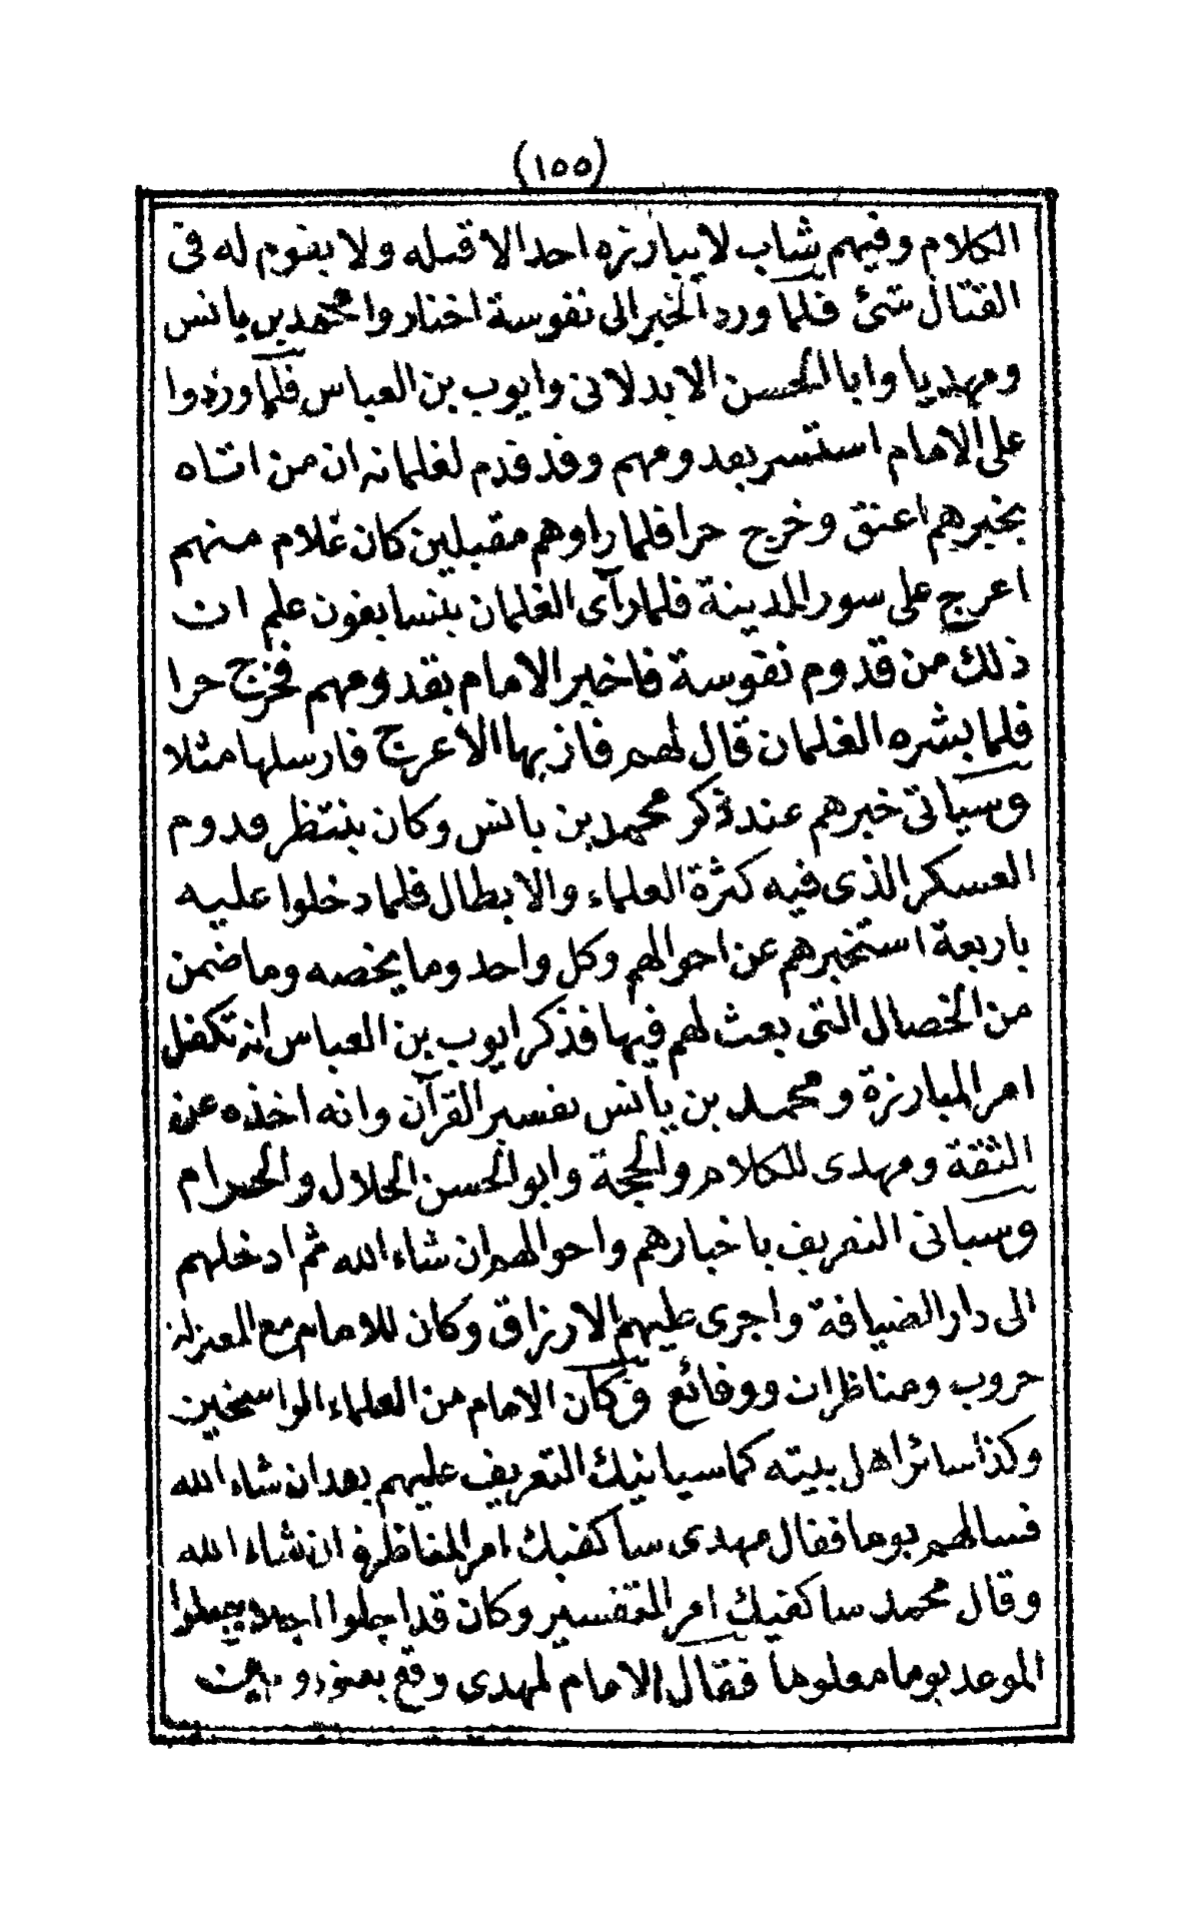 (١٥٥)
الكلام وفيهم شاب لا يبارزه احد الا قتله ولا يقوم له في
القتال شئ فلما ورد الخبر الى نفوسة اختاروا محمد بن يانس
ومهديا وابا الحسن الابدلاني وايوب بن العباس فلما وردوا
على الامام استسر بعد ومهم وقد قدم لغلمانه ان من اتاه
بخبرهم اعتق وخرج حرا فلما راوهم مقبلين كان غلام منهم
اعرج على سور المدينة فلما رآى الغلمان يتسابقون علم ان
ذلك من قدوم نفوسة فاخبر الامام بقدومهم فخرج حرا
فلما بشره الغلمان قال لهم فاز بها الاعرج فارسلها مثلا
وسياتى خبرهم عند ذكر محمد بن يانس وكان ينتظر قدوم
العسكر الذى فيه كثرة العلماء والابطال فلما دخلوا عليه
باربعة استخبرهم عن احوالهم وكل واحد وما يخصه وما ضمن
من الخصال التى بعث لهم فيها فذكر ايوب بن العباس انه تكفل
امر المبارزة ومحمد بن يانس تفسير القرآن وانه اخذه عن
الثقة ومهدى للكلام والحجة وابو الحسن الحلال والحرام
وسياتى التعريف باخبارهم واحوالهم ان شاء الله ثم ادخلهم
الى دار الضيافة واجرى عليهم الارزاق وكان للامام مع المعتزلة
حروب ومناظرات ووقائع وكان الامام من العلماء الراسخين
وكذا سائر اهل بيته كما سياتيك التعريف عليهم بعد ان شاء الله
فسالهم يوما فقال مهدى ساكفيك امر المناظرة ان شاء الله
وقال محمد ساكفيك امر التفسير وكان قد اجلوا اجلا يجعلوا
الموعد يوما معلوما فقال الامام لمهدى وقع بعض